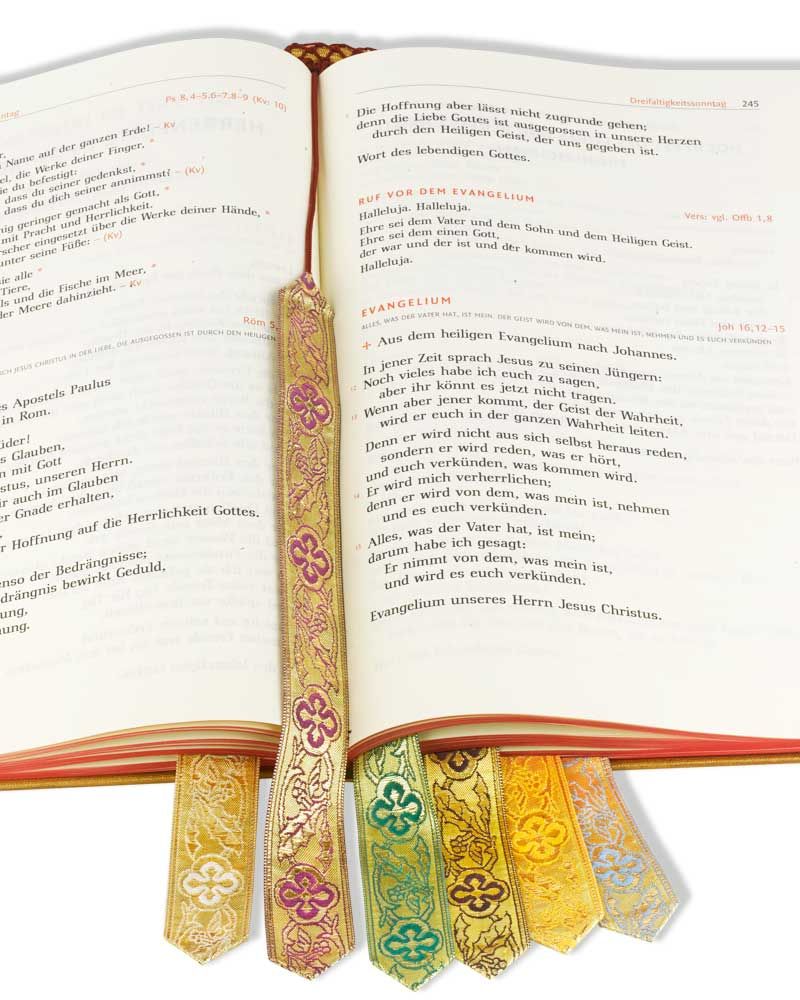 ntag
Ps 8,4–5.6–7.8–9 (Kv: 10)
Name auf der ganzen Erde! – Kv
el, die Werke deiner Finger, *
ie du befestigt:
dass du seiner gedenkst, *
dass du dich seiner annimmst? – (Kv)
nig geringer gemacht als Gott, *
mit Pracht und Herrlichkeit.
rscher eingesetzt über die Werke deiner Hände, *
unter seine Füße: – (Kv)
ie alle *
Tiere,
ls und die Fische im Meer, *
der Meere dahinzieht. – Kv
Röm 5,
RCH JESUS CHRISTUS IN DER LIEBE, DIE AUSGEGOSSEN IST DURCH DEN HEILIGEN
es Apostels Paulus
in Rom.
üder!
s Glauben,
n mit Gott
stus, unseren Herrn.
ir auch im Glauben
er Gnade erhalten,
r Hoffnung auf die Herrlichkeit Gottes.
enso der Bedrängnisse;
drängnis bewirkt Geduld,
ung,
nung.
Dreifaltigkeitssonntag 245
Die Hoffnung aber lässt nicht zugrunde gehen;
denn die Liebe Gottes ist ausgegossen in unsere Herzen
durch den Heiligen Geist, der uns gegeben ist.
Wort des lebendigen Gottes.
RUF VOR DEM EVANGELIUM
Vers: vgl. Offb 1,8
Halleluja. Halleluja.
Ehre sei dem Vater und dem Sohn und dem Heiligen Geist.
Ehre sei dem einen Gott,
der war und der ist und der kommen wird.
Halleluja.
EVANGELIUM
Joh 16,12–15
ALLES, WAS DER VATER HAT, IST MEIN. DER GEIST WIRD VON DEM, WAS MEIN IST, NEHMEN UND ES EUCH VERKÜNDEN
+ Aus dem heiligen Evangelium nach Johannes.
In jener Zeit sprach Jesus zu seinen Jüngern:
12 Noch vieles habe ich euch zu sagen,
aber ihr könnt es jetzt nicht tragen.
13 Wenn aber jener kommt, der Geist der Wahrheit,
wird er euch in der ganzen Wahrheit leiten.
Denn er wird nicht aus sich selbst heraus reden,
sondern er wird reden, was er hört,
und euch verkünden, was kommen wird.
14 Er wird mich verherrlichen;
denn er wird von dem, was mein ist, nehmen
und es euch verkünden.
15 Alles, was der Vater hat, ist mein;
darum habe ich gesagt:
Er nimmt von dem, was mein ist,
und wird es euch verkünden.
Evangelium unseres Herrn Jesus Christus.